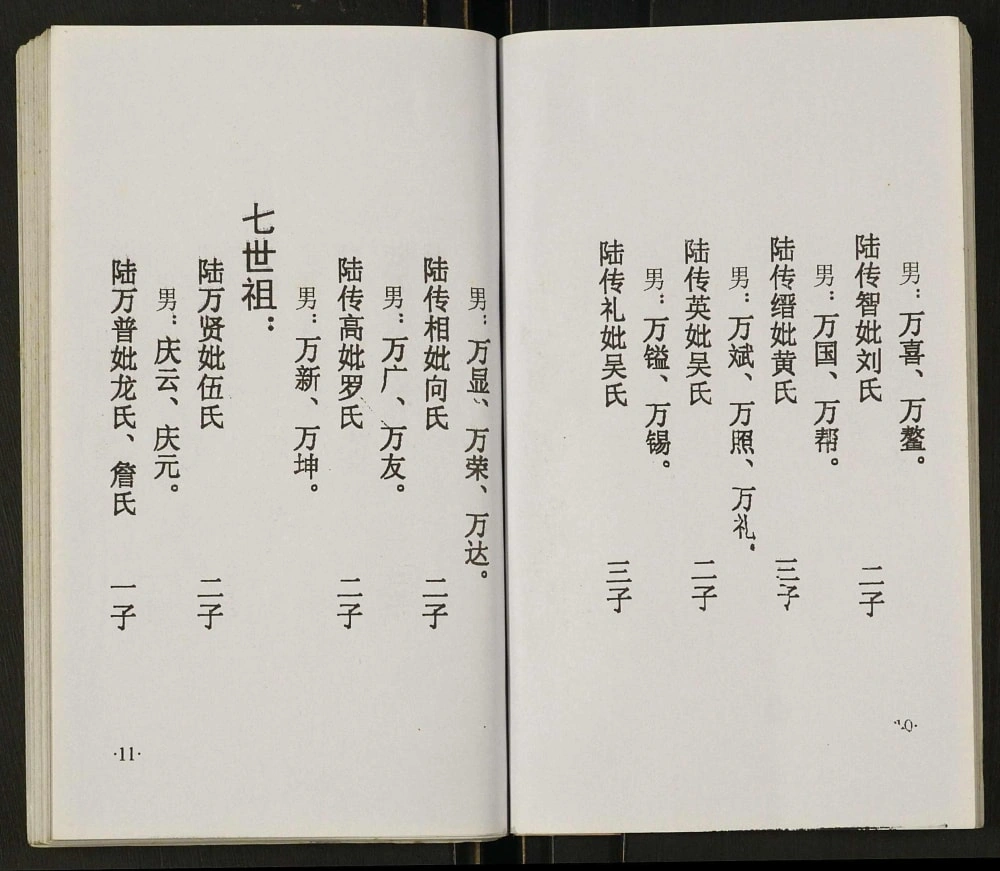 男：万喜、万鳌。
陆传智妣刘氏 二子
男：万国、万帮。
陆传缙妣黄氏 三子
男：万斌、万照、万礼.
陆传英妣吴氏 二子
男：万镒、万锡。
陆传礼妣吴氏 三子
·10·
男：万显、万荣、万达。
陆传相妣向氏 二子
男：万广、万友。
陆传高妣罗氏 二子
男：万新、万坤。
七世祖：
陆万贤妣伍氏 二子
男：庆云、庆元。
陆万普妣龙氏、詹氏 一子
·11·